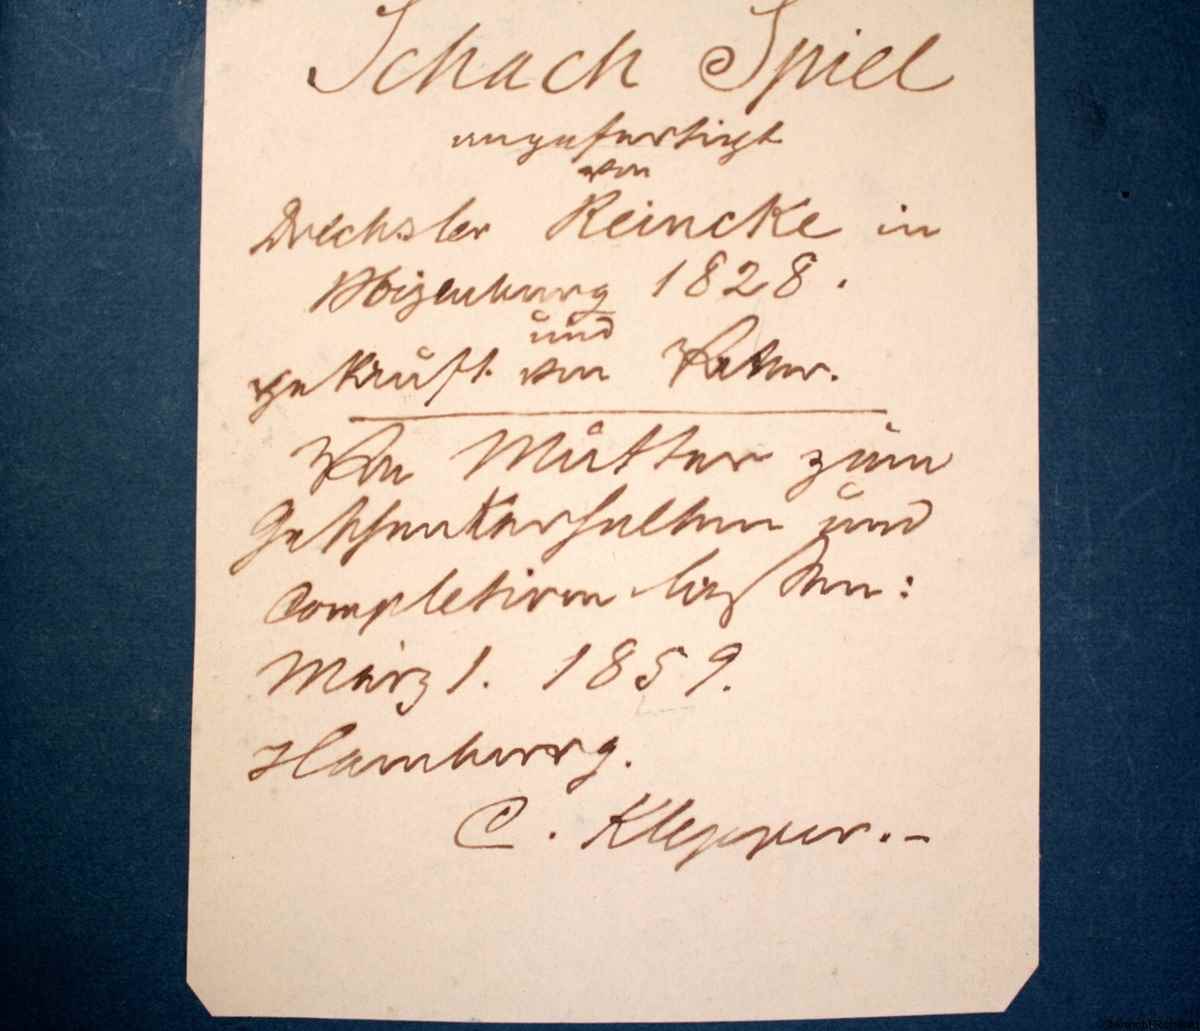 Schach Spiel
angefertigt
von
Drechsler Reincke in
Boizenburg 1828.
und
gekauft von Vater.
Von Mutter zum
Geschenk erhalten und
Completiren lassen:
März 1. 1859.
Hamburg.
C. Klepper.-